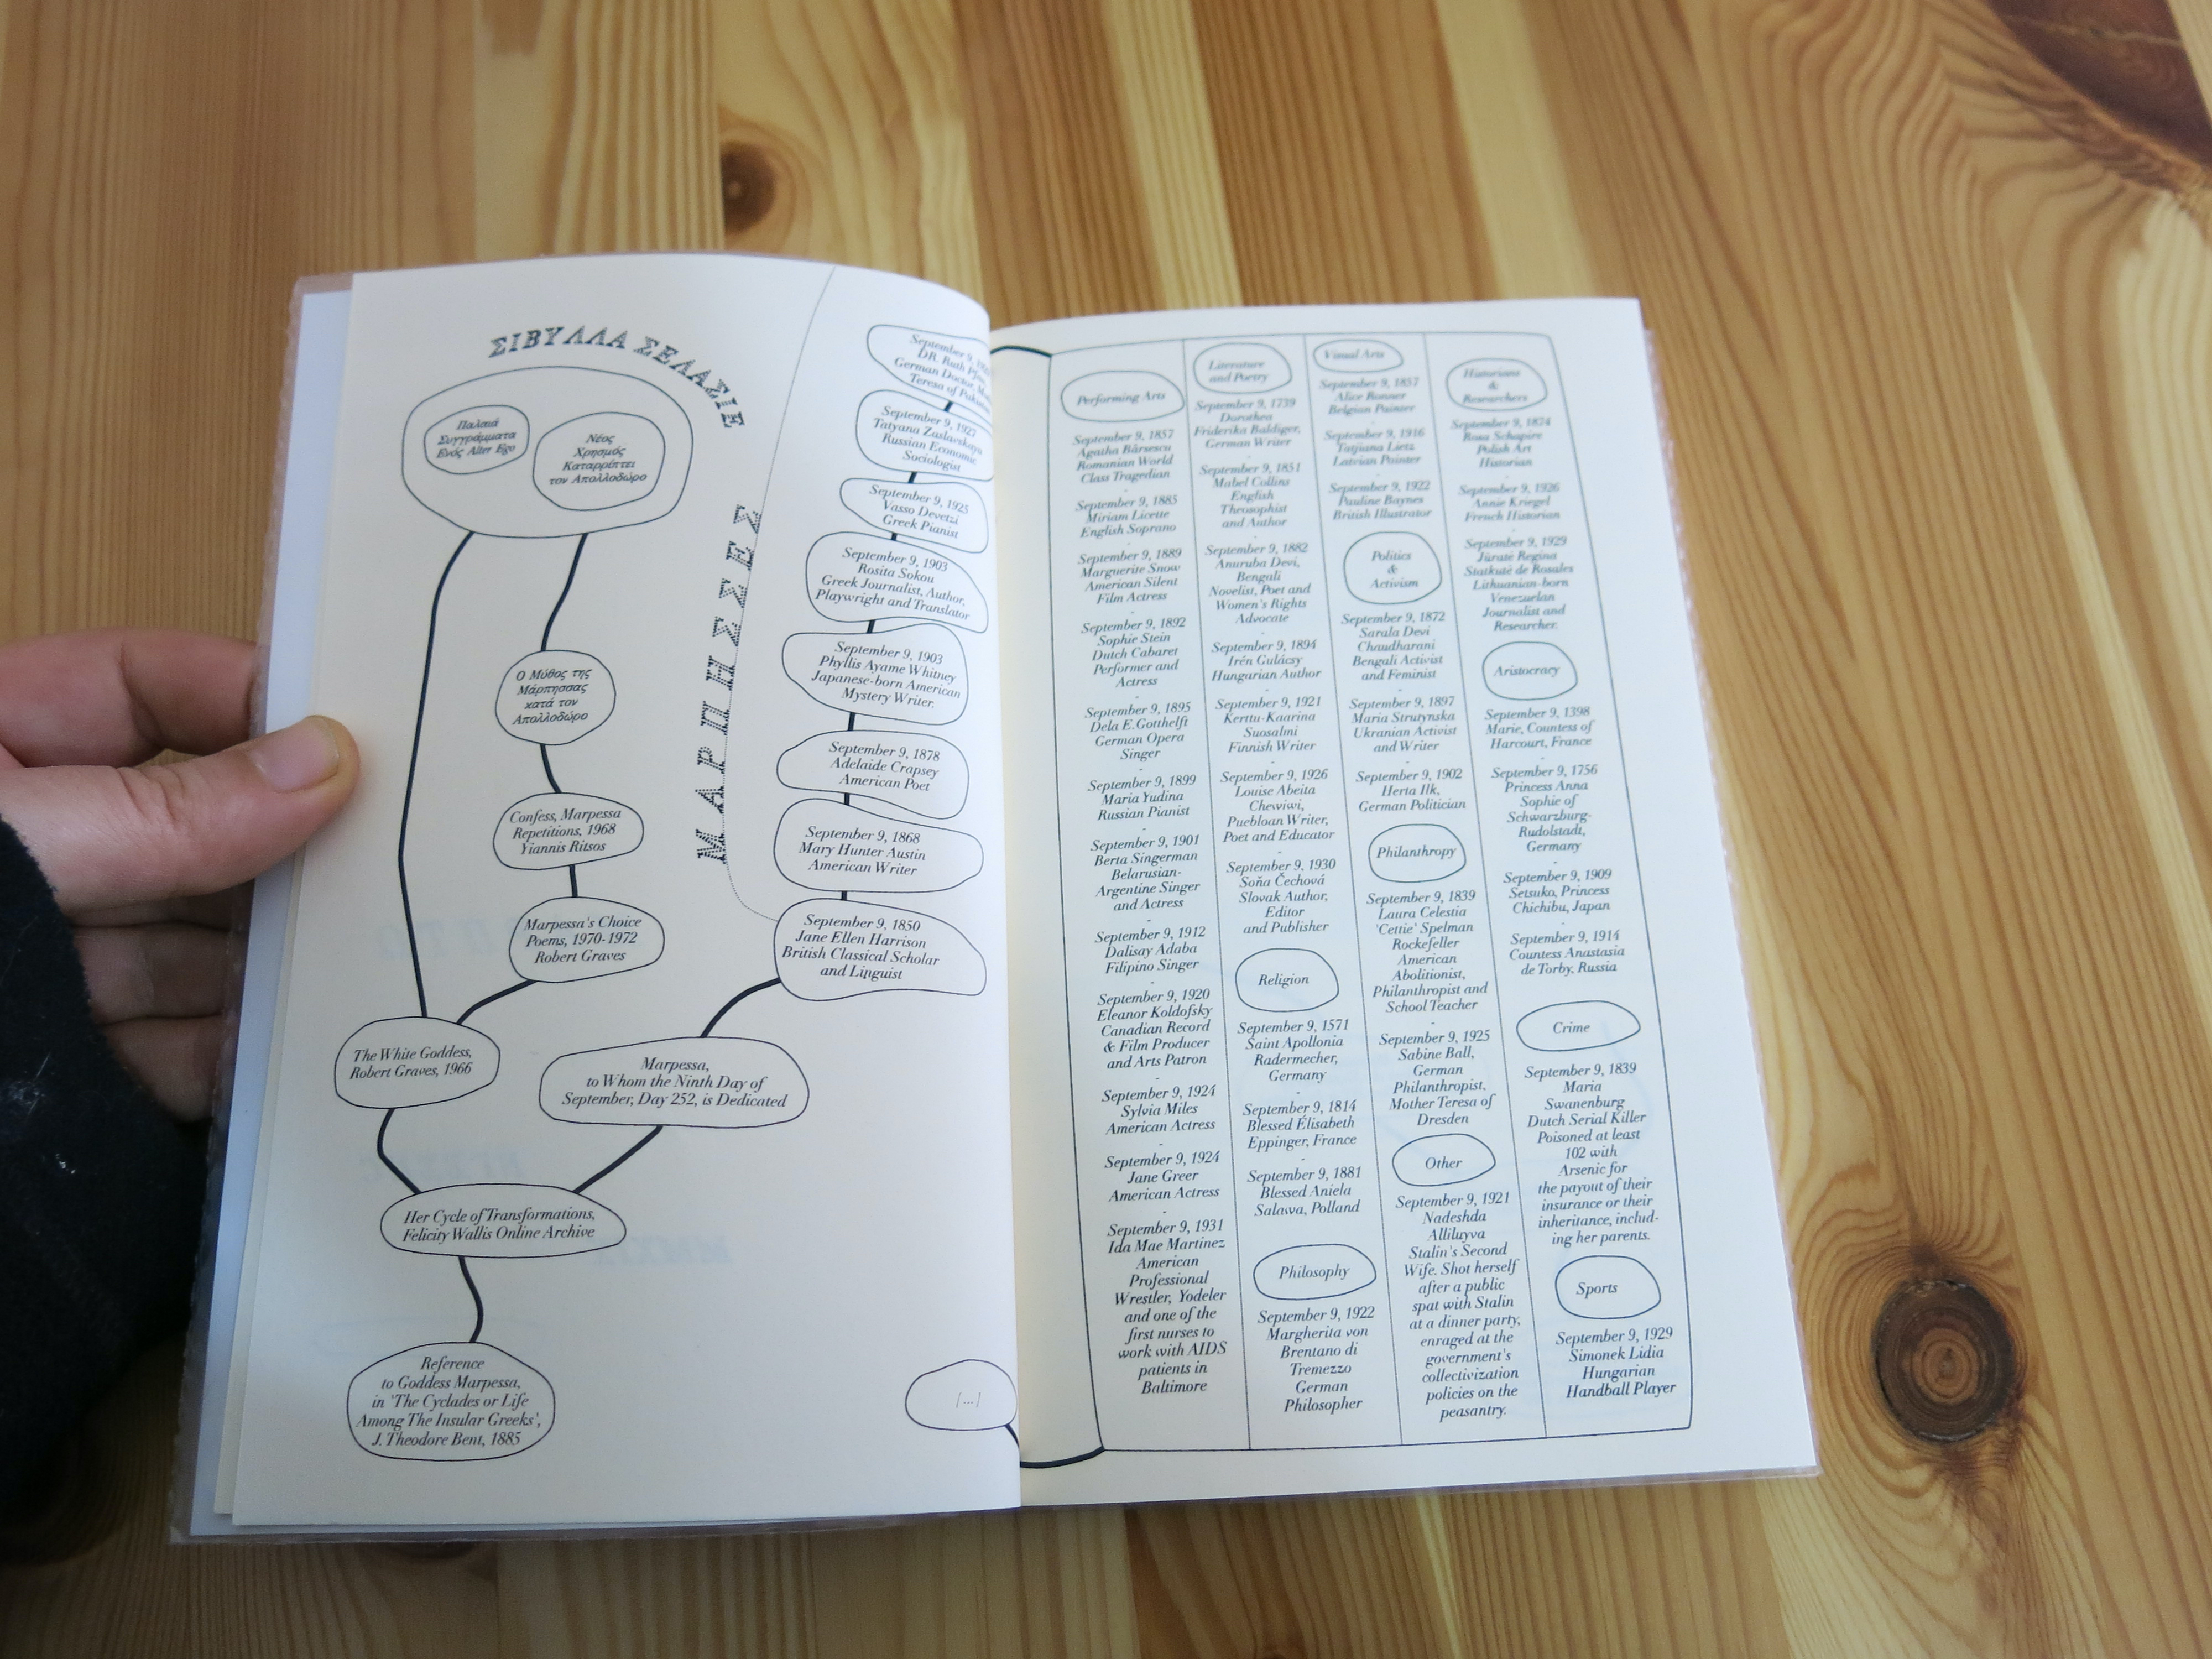 ΣΙΒΥΛΛΑ ΣΕΛΑΣΙΕ
Παλαιά
Συγγράμματα
Ενός Alter Ego
Νέος
Χρησμός
Καταρρίπτει
τον Απολλοδώρο
Ο Μύθος της
Μάρπησσας
κατά τον
Απολλοδώρο
Confess, Marpessa
Repetitions, 1968
Yiannis Ritsos
Marpessa's Choice
Poems, 1970-1972
Robert Graves
The White Goddess,
Robert Graves, 1966
ΜΑΡΠΗΣΣΕΣ
September 9,
DR. Ruth
German Doctor,
Teresa of
September 9, 1927
Tatyana Zaslavskaya
Russian Economic
Sociologist
September 9, 1925
Vasso Devetzi
Greek Pianist
September 9, 1903
Rosita Sokou
Greek Journalist, Author,
Playwright and Translator
September 9, 1903
Phyllis Ayame Whitney
Japanese-born American
Mystery Writer.
September 9, 1878
Adelaide Crapsey
American Poet
September 9, 1868
Mary Hunter Austin
American Writer
September 9, 1850
Jane Ellen Harrison
British Classical Scholar
and Linguist
Marpessa,
to Whom the Ninth Day of
September, Day 252, is Dedicated
Her Cycle of Transformations,
Felicity Wallis Online Archive
Reference
to Goddess Marpessa,
in 'The Cyclades or Life
Among The Insular Greeks',
J. Theodore Bent, 1885
/.../
Performing Arts
September 9, 1857
Agatha Bârsescu
Romanian World
Class Tragedian
-
September 9, 1885
Miriam Licette
English Soprano
-
September 9, 1889
Marguerite Snow
American Silent
Film Actress
-
September 9, 1892
Sophie Stein
Dutch Cabaret
Performer and
Actress
-
September 9, 1895
Dela E.Gotthelft
German Opera
Singer
-
September 9, 1899
Maria Yudina
Russian Pianist
-
September 9, 1901
Berta Singerman
Belarusian-
Argentine Singer
and Actress
-
September 9, 1912
Dalisay Adaba
Filipino Singer
-
September 9, 1920
Eleanor Koldofsky
Canadian Record
& Film Producer
and Arts Patron
-
September 9, 1924
Sylvia Miles
American Actress
-
September 9, 1924
Jane Greer
American Actress
-
September 9, 1931
Ida Mae Martinez
American
Professional
Wrestler, Yodeler
and one of the
first nurses to
work with AIDS
patients in
Baltimore
Literature
and Poetry
September 9, 1739
Dorothea
Friderika Baldiger,
German Writer
-
September 9, 1851
Mabel Collins
English
Theosophist
and Author
-
September 9, 1882
Anuruba Devi,
Bengali
Novelist, Poet and
Women's Rights
Advocate
-
September 9, 1894
Irén Gulácsy
Hungarian Author
-
September 9, 1921
Kerttu-Kaarina
Suosalmi
Finnish Writer
-
September 9, 1926
Louise Abeita
Chewiwi,
Puebloan Writer,
Poet and Educator
-
September 9, 1930
Soňa Čechová
Slovak Author,
Editor
and Publisher
Religion
September 9, 1571
Saint Apollonia
Radermecher,
Germany
-
September 9, 1814
Blessed Élisabeth
Eppinger, France
-
September 9, 1881
Blessed Aniela
Salawa, Polland
Philosophy
September 9, 1922
Margherita von
Brentano di
Tremezzo
German
Philosopher
Visual Arts
September 9, 1857
Alice Ronner
Belgian Painter
-
September 9, 1916
Tatjiana Lietz
Latvian Painter
-
September 9, 1922
Pauline Baynes
British Illustrator
Politics
&
Activism
September 9, 1872
Sarala Devi
Chaudharani
Bengali Activist
and Feminist
-
September 9, 1897
Maria Strutynska
Ukranian Activist
and Writer
-
September 9, 1902
Herta Ilk,
German Politician
Philanthropy
September 9, 1839
Laura Celestia
'Cettie' Spelman
Rockefeller
American
Abolitionist,
Philanthropist and
School Teacher
-
September 9, 1925
Sabine Ball,
German
Philanthropist,
Mother Teresa of
Dresden
Other
September 9, 1921
Nadeshda
Alliluyva
Stalin's Second
Wife. Shot herself
after a public
spat with Stalin
at a dinner party,
enraged at the
government's
collectivization
policies on the
peasantry.
Historians
&
Researchers
September 9, 1874
Rosa Schapire
Polish Art
Historian
-
September 9, 1926
Annie Kriegel
French Historian
-
September 9, 1929
Jūratė Regina
Statkutė de Rosales
Lithuanian-born
Venezuelan
Journalist and
Researcher.
Aristocracy
September 9, 1398
Marie, Countess of
Harcourt, France
-
September 9, 1756
Princess Anna
Sophie of
Schwarzburg-
Rudolstadt,
Germany
-
September 9, 1909
Setsuko, Princess
Chichibu, Japan
-
September 9, 1914
Countess Anastasia
de Torby. Russia
Crime
September 9, 1839
Maria
Swanenburg
Dutch Serial Killer
Poisoned at least
102 with
Arsenic for
the payout of their
insurance or their
inheritance, includ-
ing her parents.
Sports
September 9, 1929
Simonek Lidia
Hungarian
Handball Player